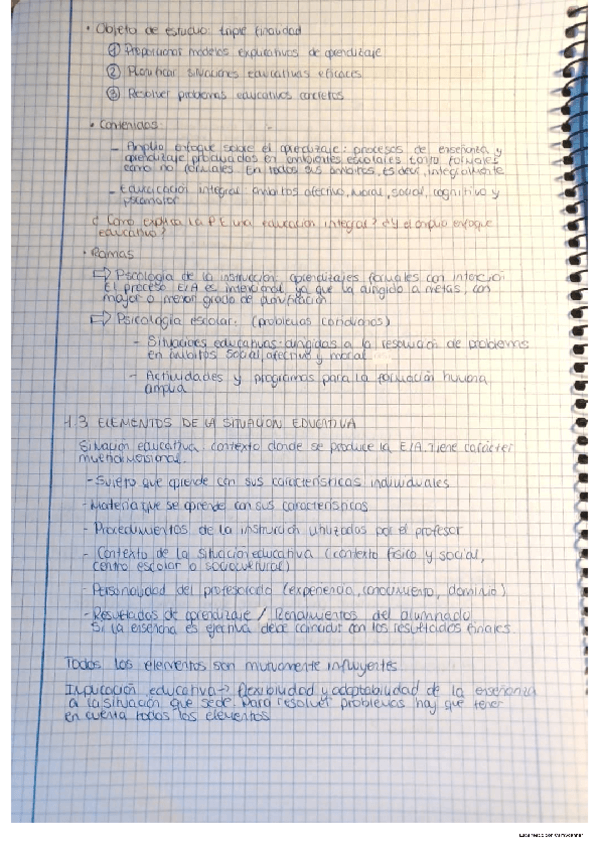 • Objeto de estudio: triple finalidad
① Proporcionar modelos explicativos de aprendizaje
② Planificar situaciones educativas eficaces
③ Resolver problemas educativos concretos
• Contenidos:
- Amplio enfoque sobre el aprendizaje: procesos de enseñanza y
aprendizaje producidos en ambientes escolares tanto formales
como no formales. En todos sus ámbitos, es decir, integralmente
- Educación integral: ámbitos afectivo, moral, social, cognitivo y
psicomotor
¿Cómo explica la PE una educación integral? ¿Y el amplio enfoque
educativo?
• Ramas
⇨ Psicología de la instrucción: aprendizajes formales con intención.
El proceso E/A es intencional ya que va dirigido a metas, con
mayor o menor grado de planificación
⇨ Psicología escolar. (problemas cotidianos)
- Situaciones educativas dirigidas a la resolución de problemas
en ámbitos social, afectivo y moral.
- Actividades y programas para la formación humana
amplia
1.3 ELEMENTOS DE LA SITUACION EDUCATIVA
Situación educativa: contexto donde se produce la E/A. Tiene carácter
multidimensional.
- Sujeto que aprende con sus características individuales
- Materia que se aprende con sus características
- Procedimientos de la instrucción utilizados por el profesor
- Contexto de la situación educativa (contexto físico y social,
centro escolar o sociocultural)
- Personalidad del profesorado (experiencia, conocimiento, dominio)
- Resultados de aprendizaje / Rendimientos del alumnado
Si la enseñanza es efectiva debe coincidir con los resultados finales.
Todos los elementos son mutuamente influyentes
Implicación educativa → flexibilidad y adaptabilidad de la enseñanza
a la situación que se dé. Para resolver problemas hay que tener
en cuenta todos los elementos